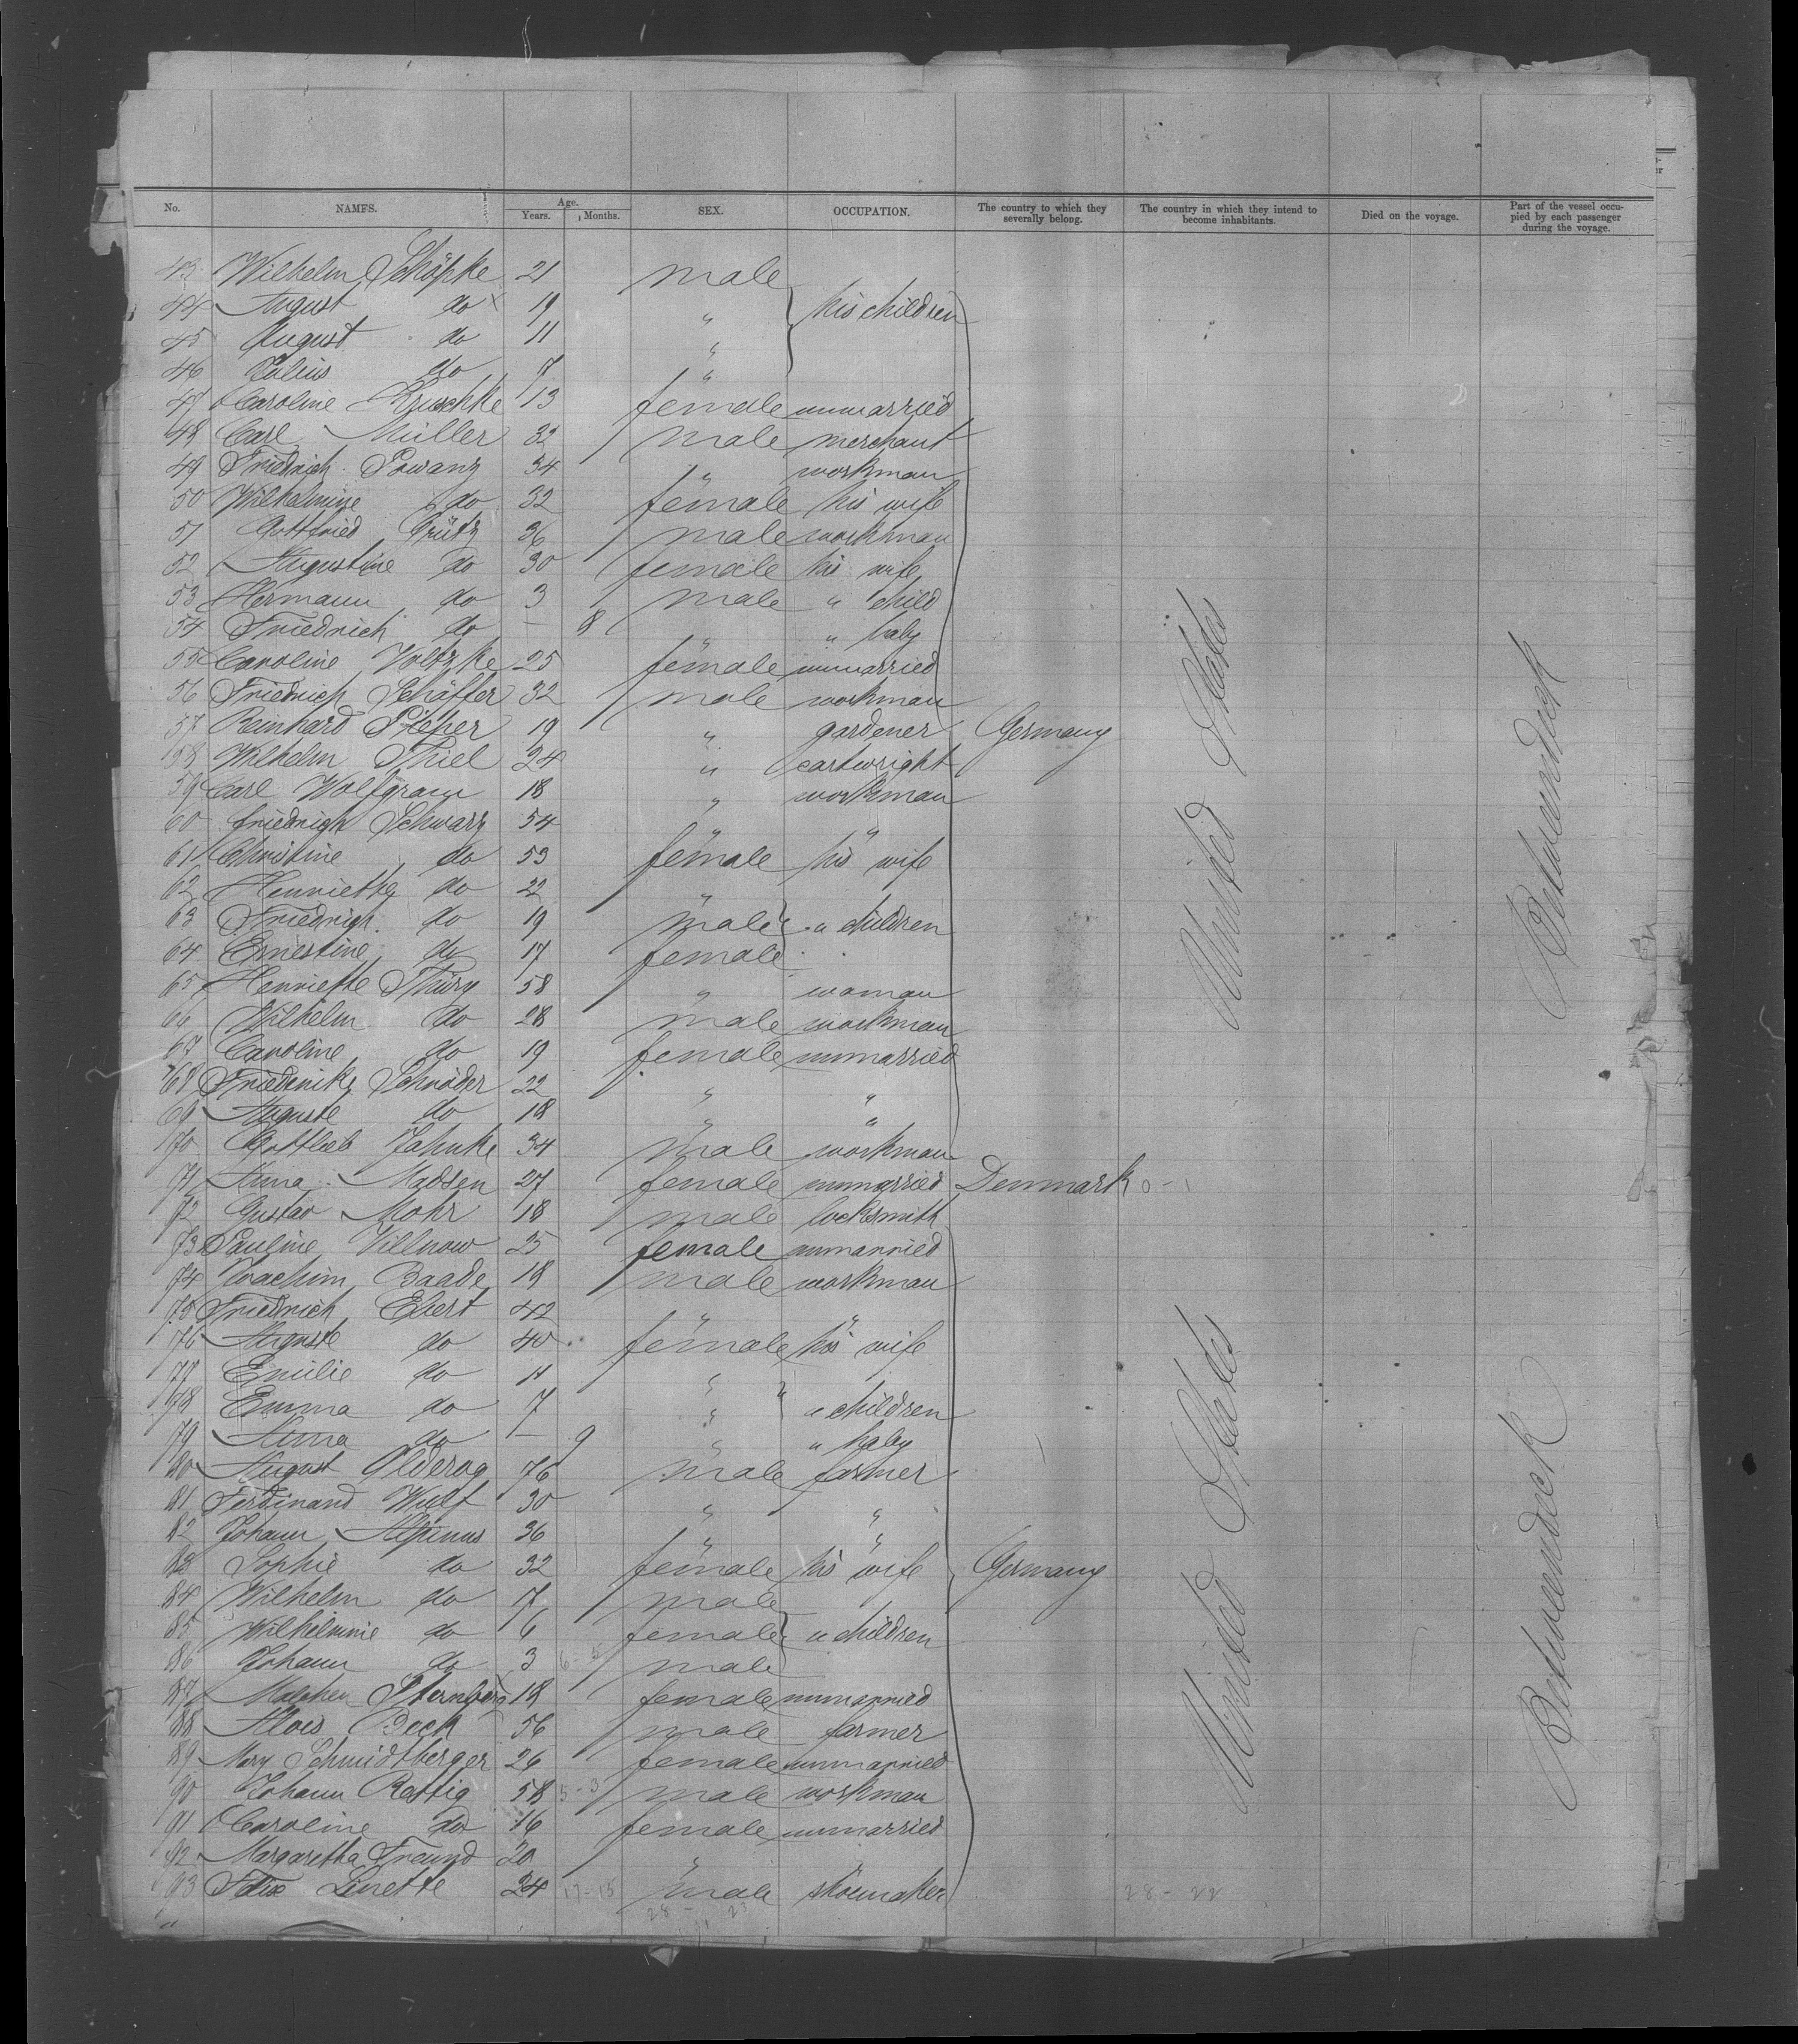 No. NAMES. Age. Years. Months. SEX. OCCUPATION. The country to which they severally belong. The country in which they intend to become inhabitants. Died on the voyage. Part of the vessel occupied by each passenger during the voyage.
43 Wilhelm Schöpke 21 male
44 August do 19 " his children
45 August do 11 "
46 Julius do 7 "
47 Caroline Kruschke 13 female unmarried
48 Carl Müller 32 male merchant
49 Friedrich 34 " workman
50 Wilhelmine do 32 female his wife
51 Gottfried Grütz 36 male workman
52 Augustine do 30 female his wife
53 Hermann do 3 male " child
54 Friedrich do – 8 " " baby
55 Caroline Voltzke 25 female unmarried
56 Friedrich Schäffer 32 male workman
57 Reinhard Pieper 19 " gardener Germany
58 Wilhelm Thiel 24 " cartwright
59 Carl Wolfgram 18 " workman
60 Friedrich Schwarz 54 " "
61 Christine do 53 female his wife
62 Henriette do 22 "
63 Friedrich do 19 male " children
64 Ernestine do 17 female
65 Henriette 58 " woman
66 Wilhelm do 28 male workman
67 Caroline do 19 female unmarried
68 Friederike Schröder 22 " "
69 Auguste do 18 " "
70 Gottlieb Jahnke 34 male workman
71 Anna Madsen 27 female unmarried Denmark 0-1
72 Gustav Mohr 18 male locksmith
73 Pauline Villnow 25 female unmarried
74 Joachim Baade 18 male workman
75 Friedrich Ebert 42 " "
76 Auguste do 40 female his wife
77 Emilie do 11 " "
78 Emma do 7 " " children
79 Anna do – 9 " " baby
80 August Olderog 76 male farmer
81 Ferdinand Wulf 30 " "
82 Johann Alpinus 36 " "
83 Sophie do 32 female his wife Germany
84 Wilhelm do 7 male
85 Wilhelmine do 6 female " children
86 Johann do 3 male
87 Malchen Sternberg 18 female unmarried
88 Alois Beck 56 male farmer
89 Mary Schmidtberger 26 female unmarried
90 Johann Rattig 58 5-3 male workman
91 Caroline do 16 female unmarried
92 Margaretha Freund 20 "
93 Linette 24 17-15 male shoemaker 28-22
United States
Betweendeck
United States
Betweendeck